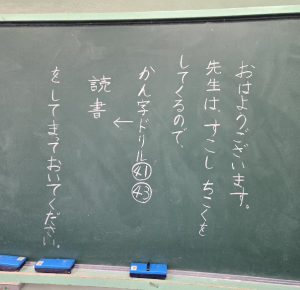 おはようございます。
先生は、すこしちこくを
してくるので、
かん字ドリル㊶㊸
↓
読書
をしてまっておいてください。